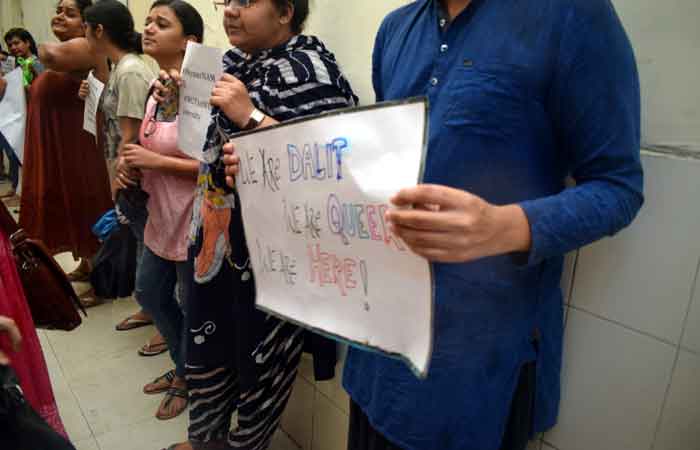 WE ARE DALIT
WE ARE QUEER
WE ARE HERE!